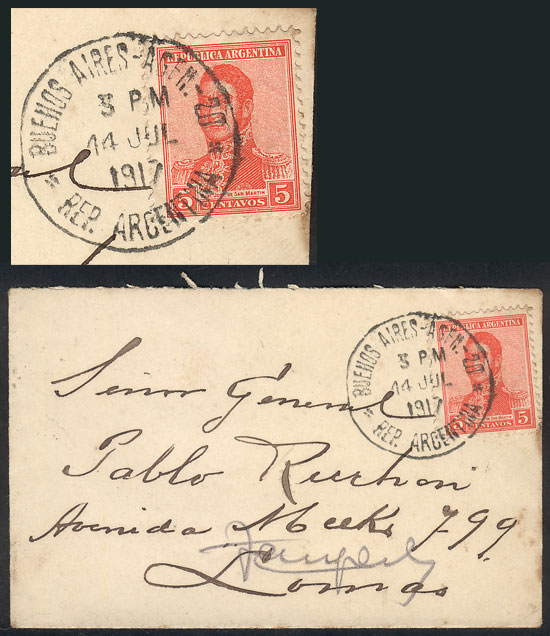 REPUBLICA ARGENTINA
BUENOS AIRES-AGEN.-20
3 PM
14 JUL
1917
* REP. ARGENTINA *
SAN MARTIN
5 5
CENTAVOS
REPUBLICA ARGENTINA
BUENOS AIRES-AGEN.-20
3 PM
14 JUL
1917
* REP. ARGENTINA *
5
Señor General
Pablo
Avenida Meeks 799
Lomas